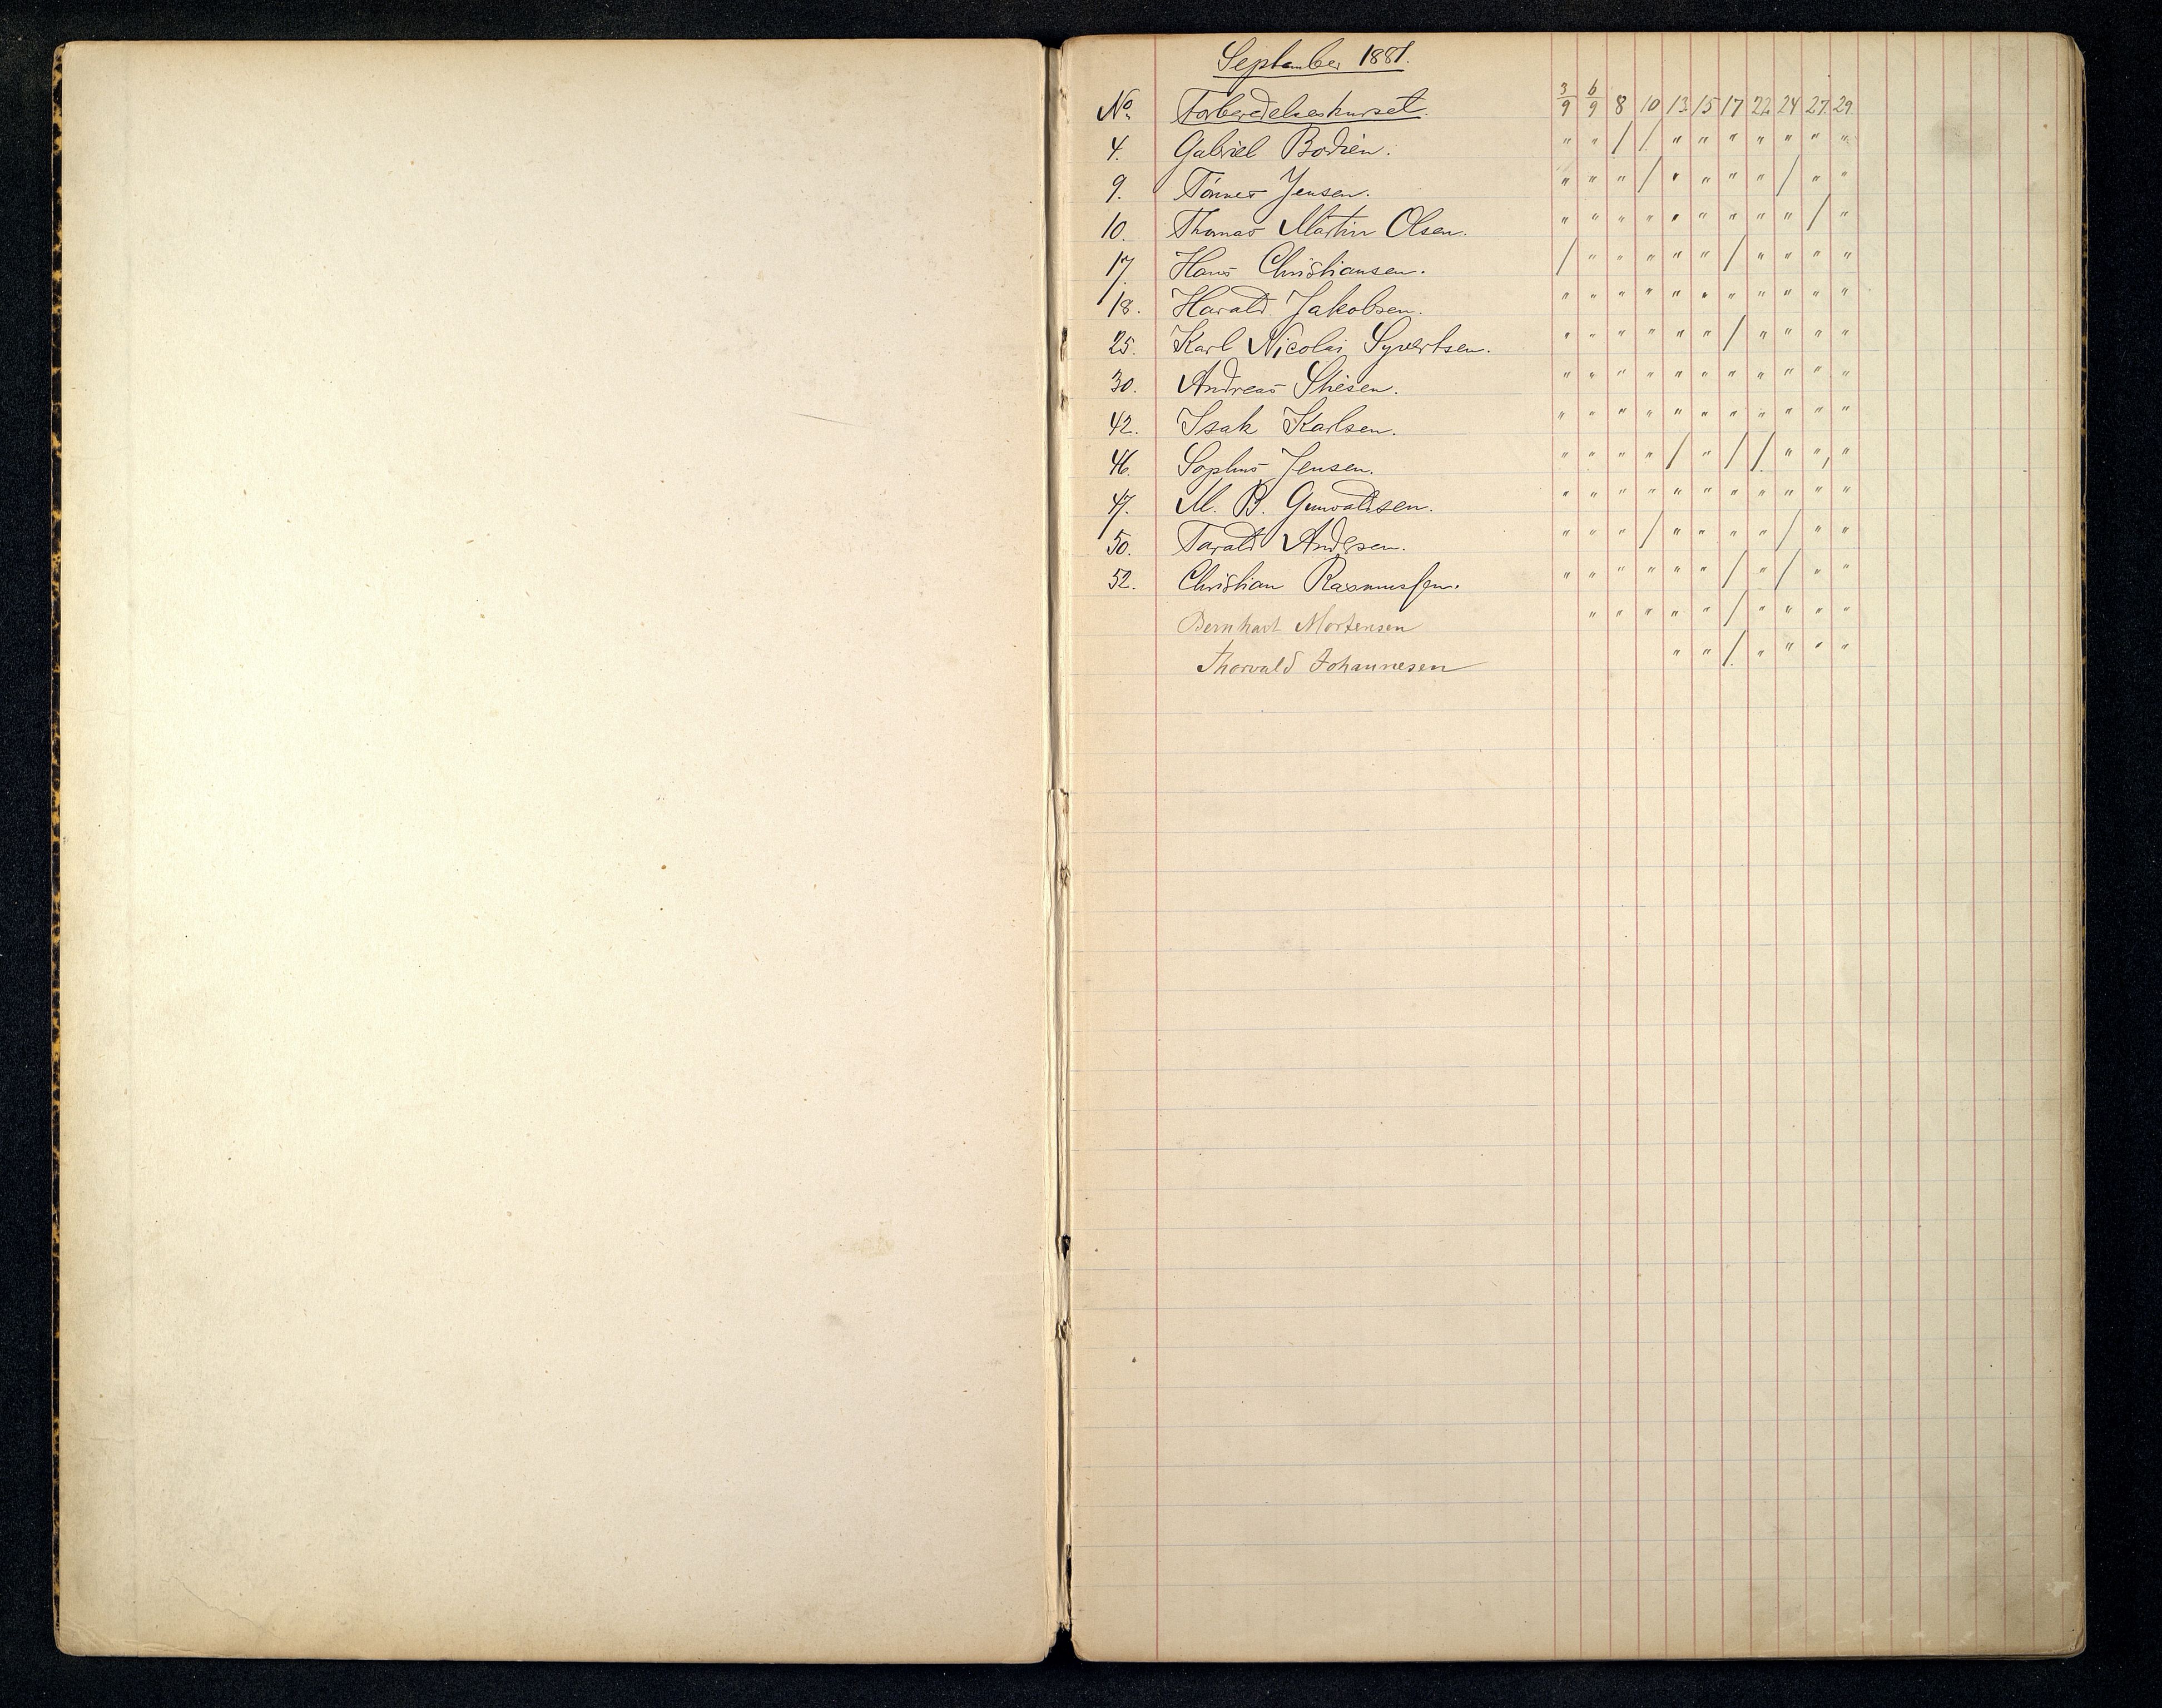 September 1881.
No. Forberedelseskurset. 3/9 6/9 8 10 13 15 17 22 24 27. 29.
4. Gabriel Bodien. " " / / " " " " " " "
9. Tønnes Jensen. " " " / " " " " / " "
10. Thomas Martin Olsen. " " " " " " " " " / "
17. Hans Christiansen. / " " " " " / " " " "
18. Harald Jakobsen. " " " " " " " " " " "
25. Karl Nicolai Syvertsen. " " " " " " / " " " "
30. Andreas " " " " " " " " " " "
42. Isak Karlsen. " " " " " " " " " " "
46. Sophus Jensen. " " " " / " / / " " "
47. M. B. Gunvaldsen. " " " " " " " " " " "
50. Tarald Andersen. " " " / " " " " / " "
52. Christian Rasmussen. " " " " " " / " / " "
Bernhart Mortensen " " " " " / " " " "
Thorvald Johannesen " " / " " " "